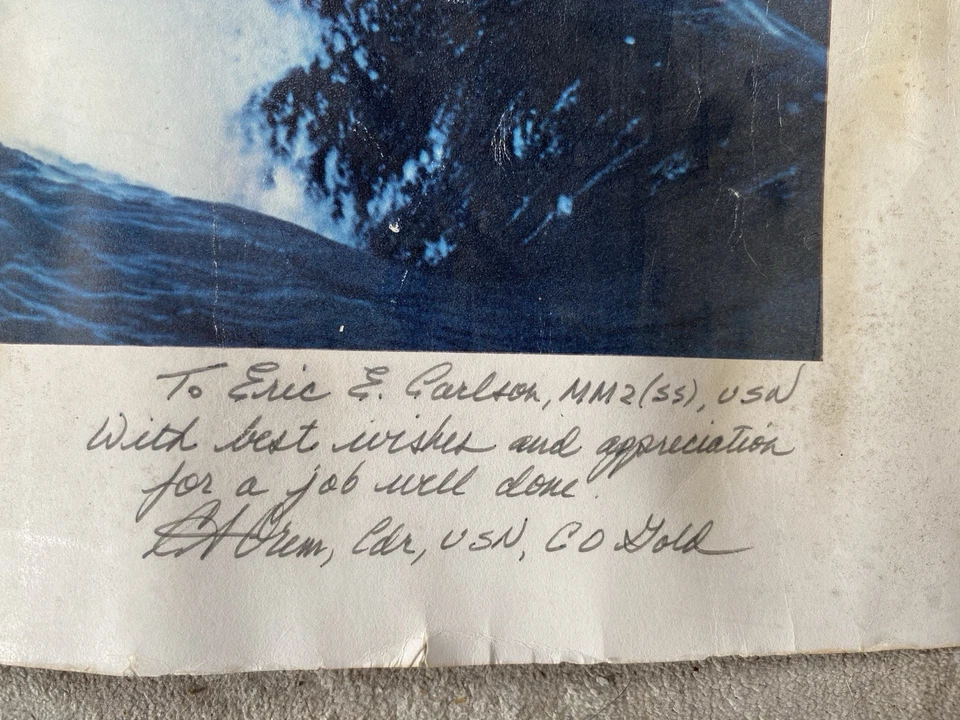 To Eric E. Carlson, MM2(SS), USN
With best wishes and appreciation
for a job well done.
Orem, Cdr, USN, CO Gold